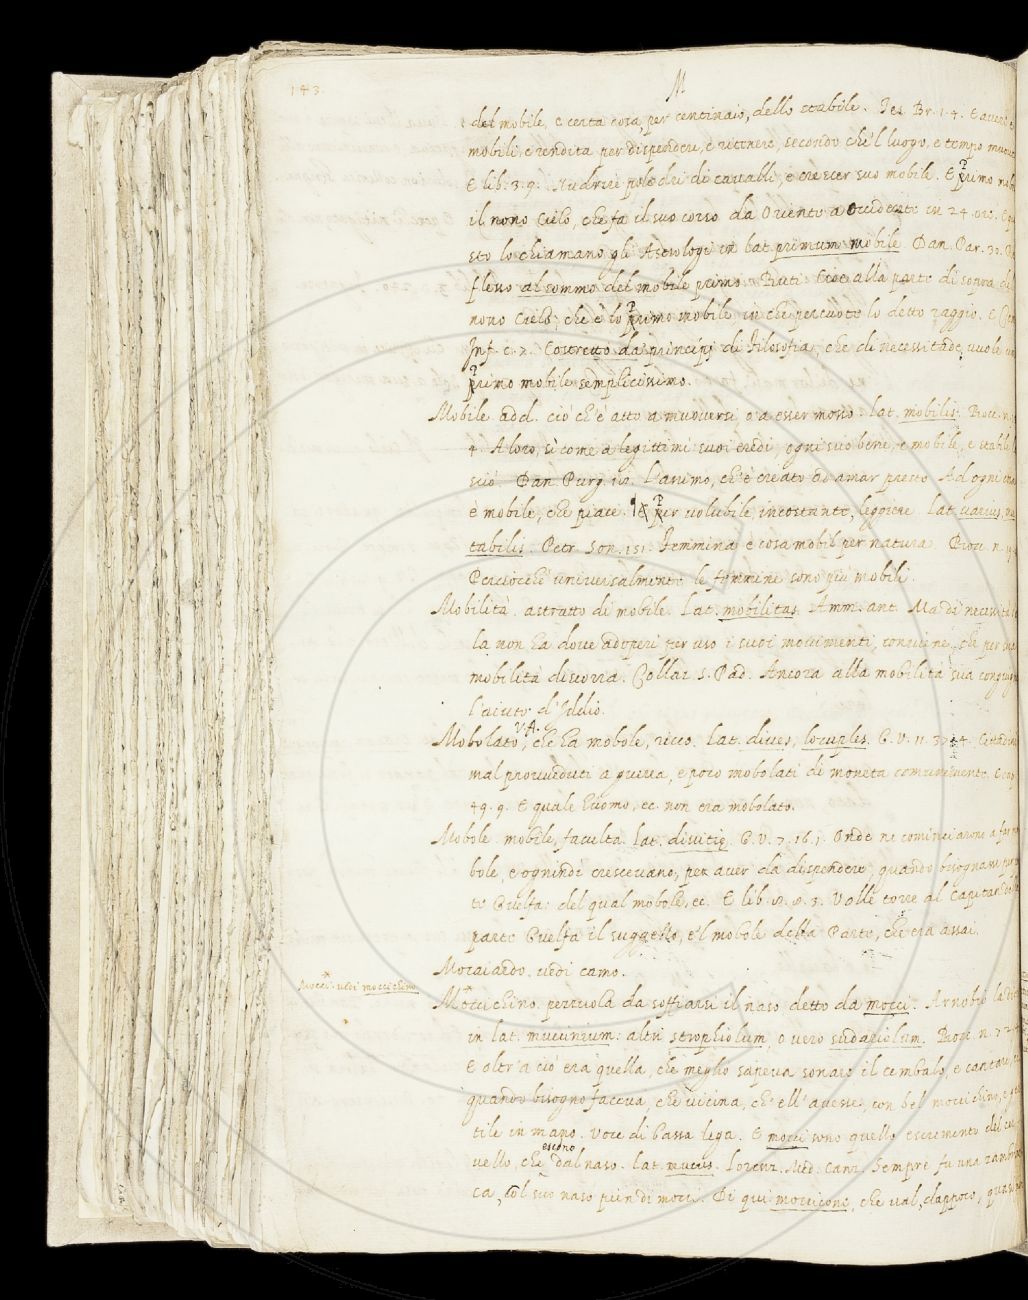 143.
M
del mobile, e certa cosa, per centinaio, dello stabile. Tes. Br. 1. 4. E
mobili, e rendita per dispendere, e ritenere, secondo che 'l luogo, e tempo
E lib. 3. 9. Nudrire poledri di cavalli, e crescer suo mobile. E primo
il nono Cielo, che fa il suo corso da Oriente a Occidente in 24. ore.
sto lo chiamano gli Astrologi in lat. primum mobile. Dan. Par. 30.
flesso al sommo del mobile primo. But. Cioè alla parte di sopra
nono Cielo, che è lo primo mobile in che percuote lo detto raggio. E
Inf. c. 7. Costretto da principj di filosofia, che di necessitade, vuole
primo mobile semplicissimo.
Mobile. add. ciò ch'è atto a muoversi o a esser mosso. Lat. mobilis. Bocc.
4. A loro, sì come a legittimi suoi eredi, ogni suo bene, e mobile, e stabile
sciò. Dan. Purg. 18. L'animo, ch'è creato ad amar presto Ad ogni
è mobile, che piace. ¶ E per volubile, incostante, leggiere. Lat. varius,
tabilis. Petr. Son. 151. Femmina è cosa mobil per natura. Bocc. n.
Perciocchè universalmente le femmine sono più mobili.
Mobilità. astratto di mobile. Lat. mobilitas. Amm. ant. Ma di necessità
la non ha dove adoperi per uso i suoi movimenti, conviene, che per
mobilità discorra. Collaz. S. Pad. Ancora alla mobilità sua
l'aiuto d'Iddio.
V.A.
Mobolato, che ha mobole, ricco. Lat. dives, locuples. G. V. 11. 3.
mal provveduti a guerra, e poco mobolati di moneta comunemente. E
49. 9. E quale huomo, ec. non era mobolato.
Mobole. mobile, facultà. Lat. divitię. G. V. 7. 16. 1. Onde ne cominciarono a
bole, e ognindì crescevano, per aver da dispendere, quando bisognasse
te Guelfa: del qual mobole, ec. E lib. 8. 8. 3. Volle torre al Capitano
parte Guelfa il suggello, e 'l mobole della Parte, che era assai.
Mocaiardo. vedi camo.
Mocci. vedi moccichino
Moccichino. pezzuola da soffiarsi il naso detto da mocci. Arnobio
in lat. muccinium: altri strophiolum, o vero sudariolum. Bocc. n. 72.
E oltr'a ciò era quella, che meglio sapeva sonare il cembalo, e cantare
quando bisogno faceva, che vicina, ch'ell'avesse, con bel moccichino,
tile in mano. Voce di bassa lega. E mocci sono quello escremento del
escono
vello, che dal naso. Lat. mucus. Lorenz. Med. Canz. Sempre fu una
ca, col suo naso pien di mocci. Di qui moccicone, che val, dappoco,